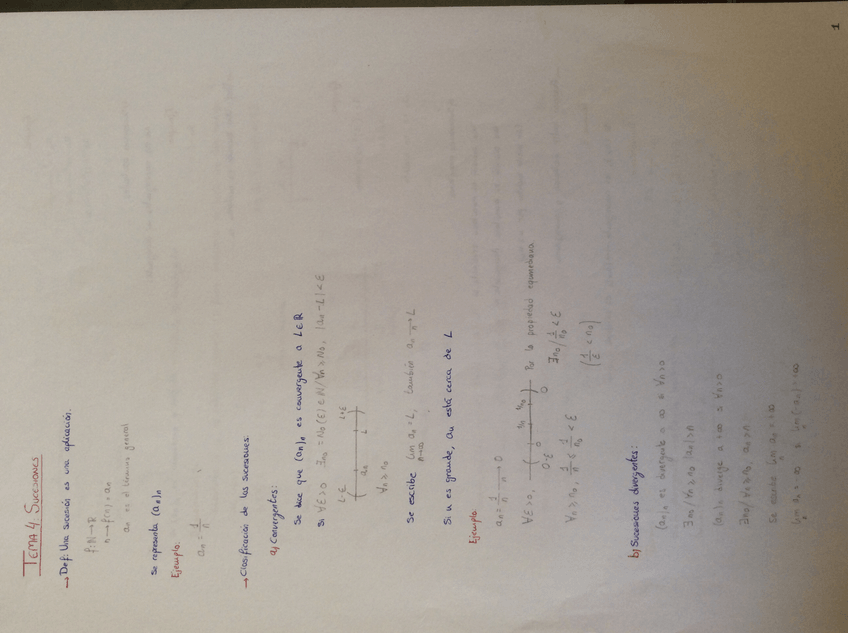 1
TEMA 4 SUCESIONES
→ Def: Una sucesión es una aplicación.
f: N → R
n → f(n) = an
an es el término general
Se representa (an)n
Ejemplo:
an = 1/n
→ Clasificación de las sucesiones:
a) Convergentes:
Se dice que (an)n es convergente a L∈R
si ∀ε>0 ∃n0 = N0(ε) ∈ N / ∀n≥n0, |an-L|<ε
L-ε an L L+ε
∀n≥n0
Se escribe lim an = L, también an → L
n→∞
Si n es grande, an está cerca de L
Ejemplo
an = 1/n → 0
∀ε>0, 0-ε 0 Por la propiedad
∃n0 / 1/n0 < ε
∀n≥n0, 1/n ≤ 1/n0 < ε
(1/ε < n0)
b) Sucesiones divergentes:
(an)n es divergente a ∞ si ∀M>0
∃n0 / ∀n≥n0 |an|>M
(an)n diverge a +∞ si ∀M>0
∃n0 / ∀n≥n0, an>M
Se escribe lim an = +∞
lim an = -∞ si lim (-an) = +∞